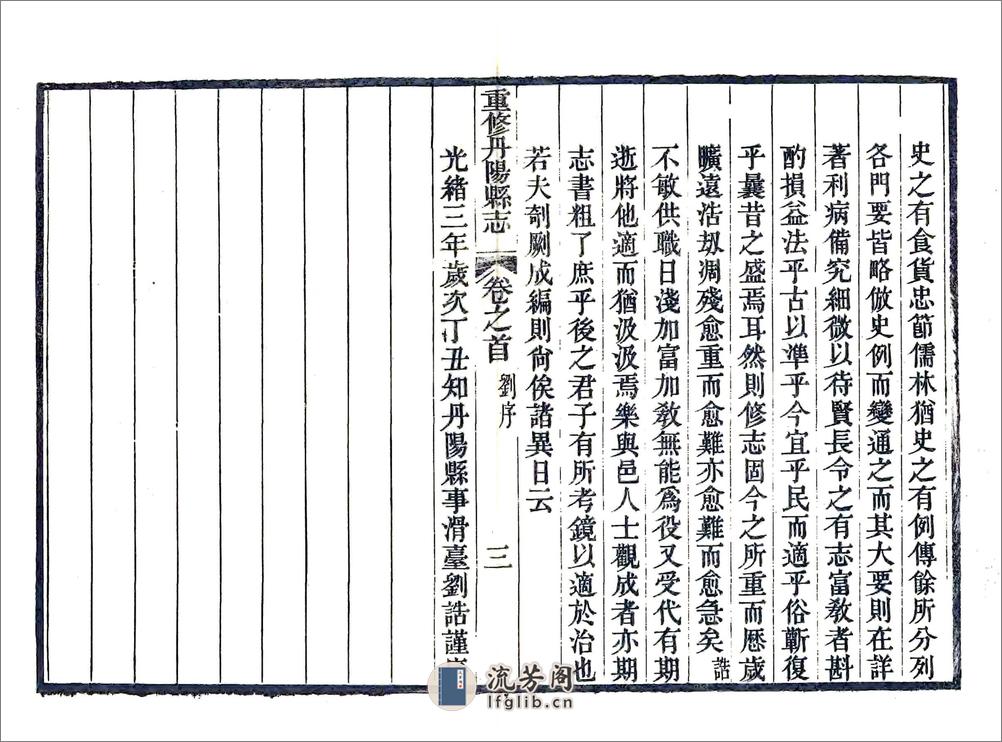 史之有食貨忠節儒林猶史之有例傳餘所分列
各門要皆略倣史例而變通之而其大要則在詳
著利病備究細微以待賢長令之有志富敎者斟
酌損益法乎古以準乎今宜乎民而適乎俗蘄復
乎曩昔之盛焉耳然則修志固今之所重而厯歲
曠遠浩刼凋殘愈重而愈難亦愈難而愈急矣誥
不敏供職日淺加富加敎無能爲役又受代有期
逝將他適而猶汲汲焉樂與邑人士觀成者亦期
志書粗了庶乎後之君子有所考鏡以適於治也
若夫剞劂成編則尙俟諸異日云
重修丹陽縣志 卷之首 劉序 三
光緒三年歲次丁丑知丹陽縣事滑臺劉誥謹序
流芳阁
lfglib.cn